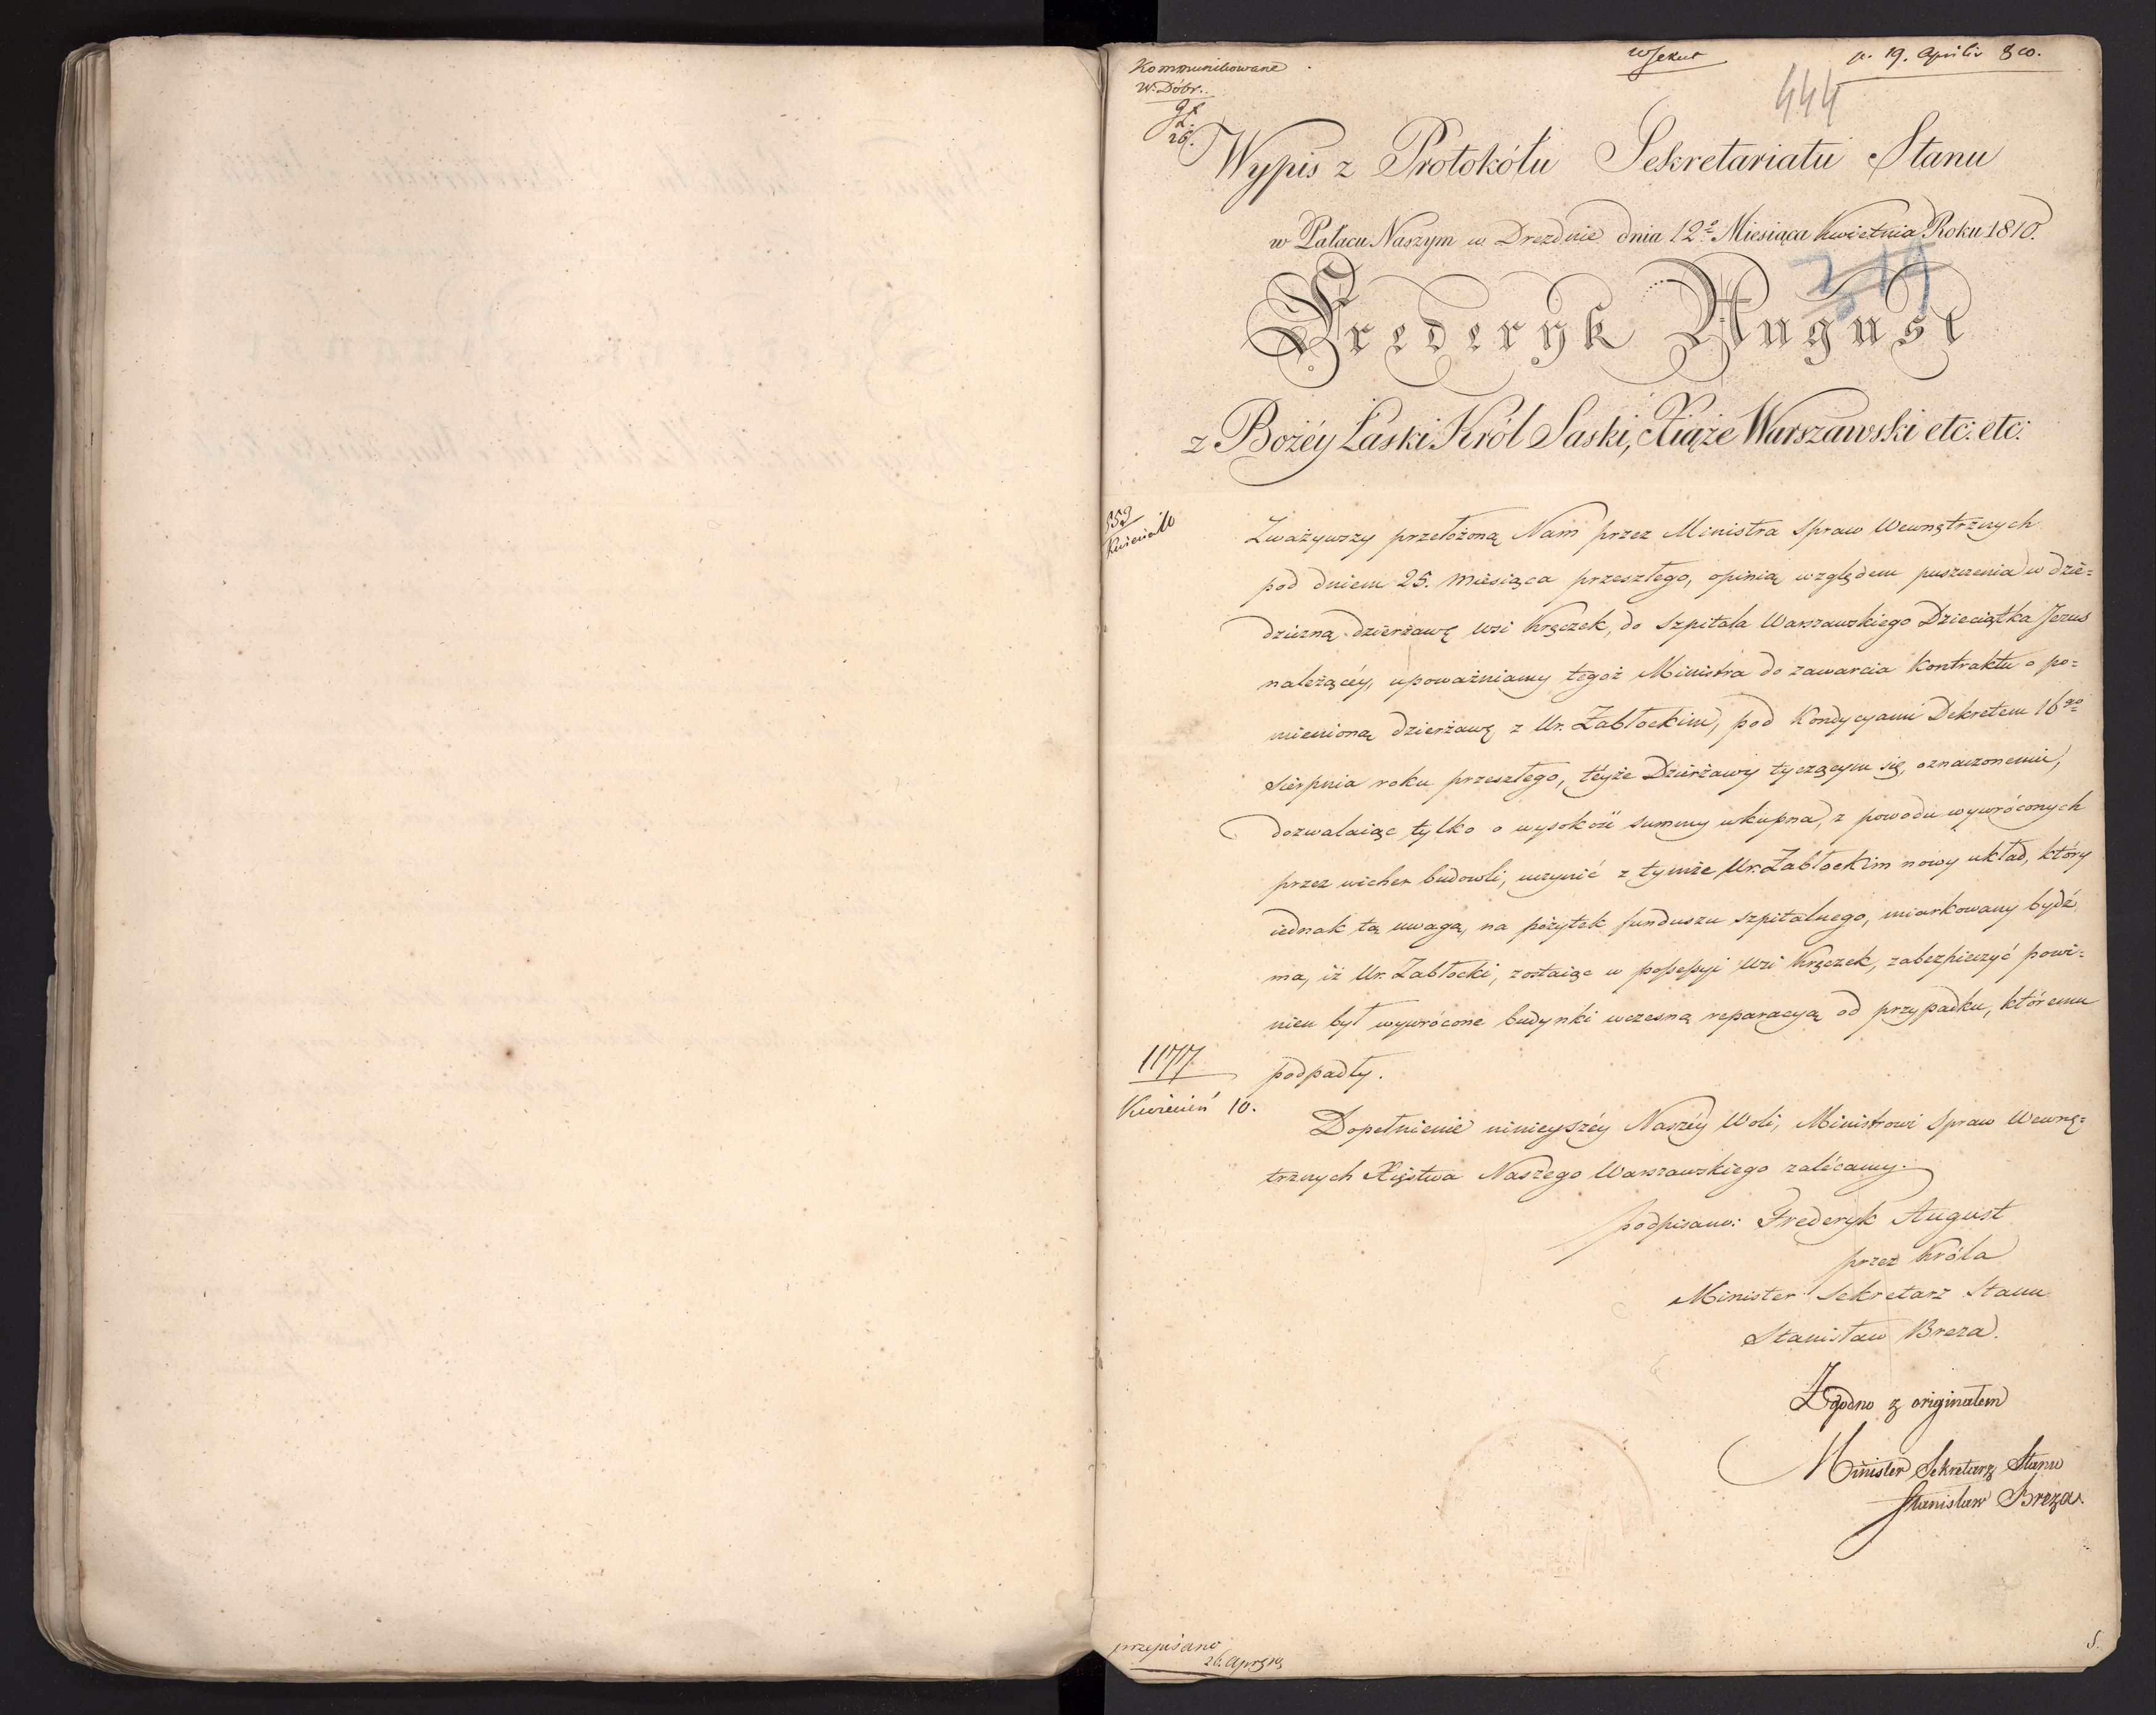 Kommunikowane
W. Dóbr.
26.
p. 19. Aprilis 810.
444
Wypis z Protokółu Sekretariatu Stanu
w Pałacu Naszym w Dreźdnie dnia 12º Miesiąca Kwietnia Roku 1810.
Frederyk August
z Bożéy Łaski Król Saski, Xiąże Warszawski etc: etc:
553
Zważywszy przełożoną Nam przez Ministra Spraw Wewnętrznych
pod dniem 25. miesiąca przeszłego, opinią względem puszczenia w dzie=
dziczną dzierżawę wsi Kręczek, do Szpitala Warszawskiego Dzieciątka Jezus
należącéy, upoważniamy tegoż Ministra do zawarcia Kontraktu o po=
mienioną dzierżawę z Ur. Zabłockim, pod Kondycyami Dekretem 16go
Sierpnia roku przeszłego, téyże Dzierżawy tyczącym się, oznaczonemi,
dozwalaiąc tylko o wysokości summy wkupna, z powodu wywróconych
przez wicher budowli, uczynić z tymże Ur. Zabłockim nowy układ, który
iednak tą uwagą, na pożytek funduszu szpitalnego, miarkowany bydź
ma, iż Ur. Zabłocki, zostaiąc w possessyi wsi Kręczek, zabezpieczyć powi=
nien był wywrócone budynki wczesną reparacyą od przypadku, któremu
podpadły.
1177
Kwiecień 10.
Dopełnienie ninieyszéy Naszéy Woli, Ministrowi Spraw Wewnę=
trznych Xięstwa Naszego Warszawskiego zalécamy.
podpisano: Frederyk August
przez Króla
Minister Sekretarz Stanu
Stanisław Breza.
Zgodno z originałem
Minister Sekretarz Stanu
Stanisław Breza.
przepisano